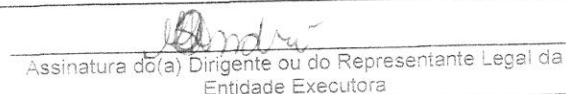 Assinatura do(a) Dirigente ou do Representante Legal da
Entidade Executora